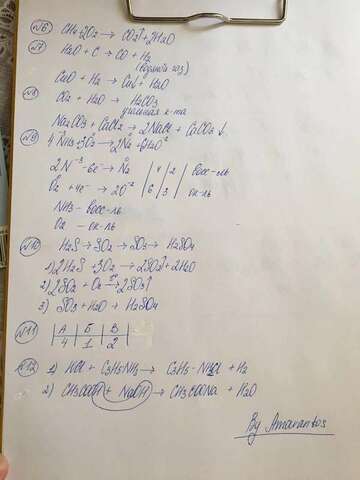 №6 CH4+2O2 → CO2↑+2H2O
№7 H2O + C → CO + H2
(водяной газ)
CuO + H2 → Cu↓ + H2O
№8 CO2 + H2O → H2CO3
угольная к-та
Na2CO3 + CaCl2 → 2NaCl + CaCO3↓
№9 4NH3+3O2 → 2N2+6H2O
2N-3 -6e- → N2 | 4 | 2 | восс-ль
O2 +4e- → 2O-2 | 6 | 3 | ок-ль
NH3 - восс-ль
O2 - ок-ль
№10 H2S → SO2 → SO3 → H2SO4
1) 2H2S +3O2 → 2SO2↑+2H2O
2) 2SO2 + O2 → 2SO3↑
3) SO3 + H2O → H2SO4
№11 А | Б | В
4 | 1 | 2
№12 1) HCl + C2H5NH2 → C2H5-NHCl + H2
2) CH3COOH + NaOH → CH3COONa + H2O
By Amarantos